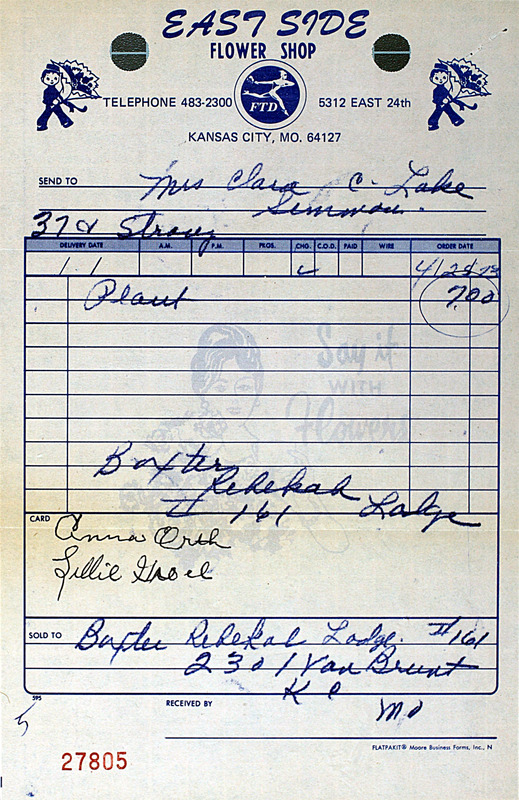 EAST SIDE
FLOWER SHOP
TELEPHONE 483-2300 FTD 5312 EAST 24th
KANSAS CITY, MO. 64127
SEND TO Mrs Clara C. Lake
37 & Stroug
DELIVERY DATE A.M. P.M. PKGS. CHG. C.O.D. PAID WIRE ORDER DATE
/ / 4/25/73
Plant 7.00
Say it
WITH
Flowers
Baxter
Rebekah Lodge
# 161
CARD Anna Orth
Lillie
SOLD TO Baxter Rebekah Lodge #161
2301 Van Brunt
K C
Mo
595
5
RECEIVED BY
FLATPAKIT® Moore Business Forms, Inc., N
27805